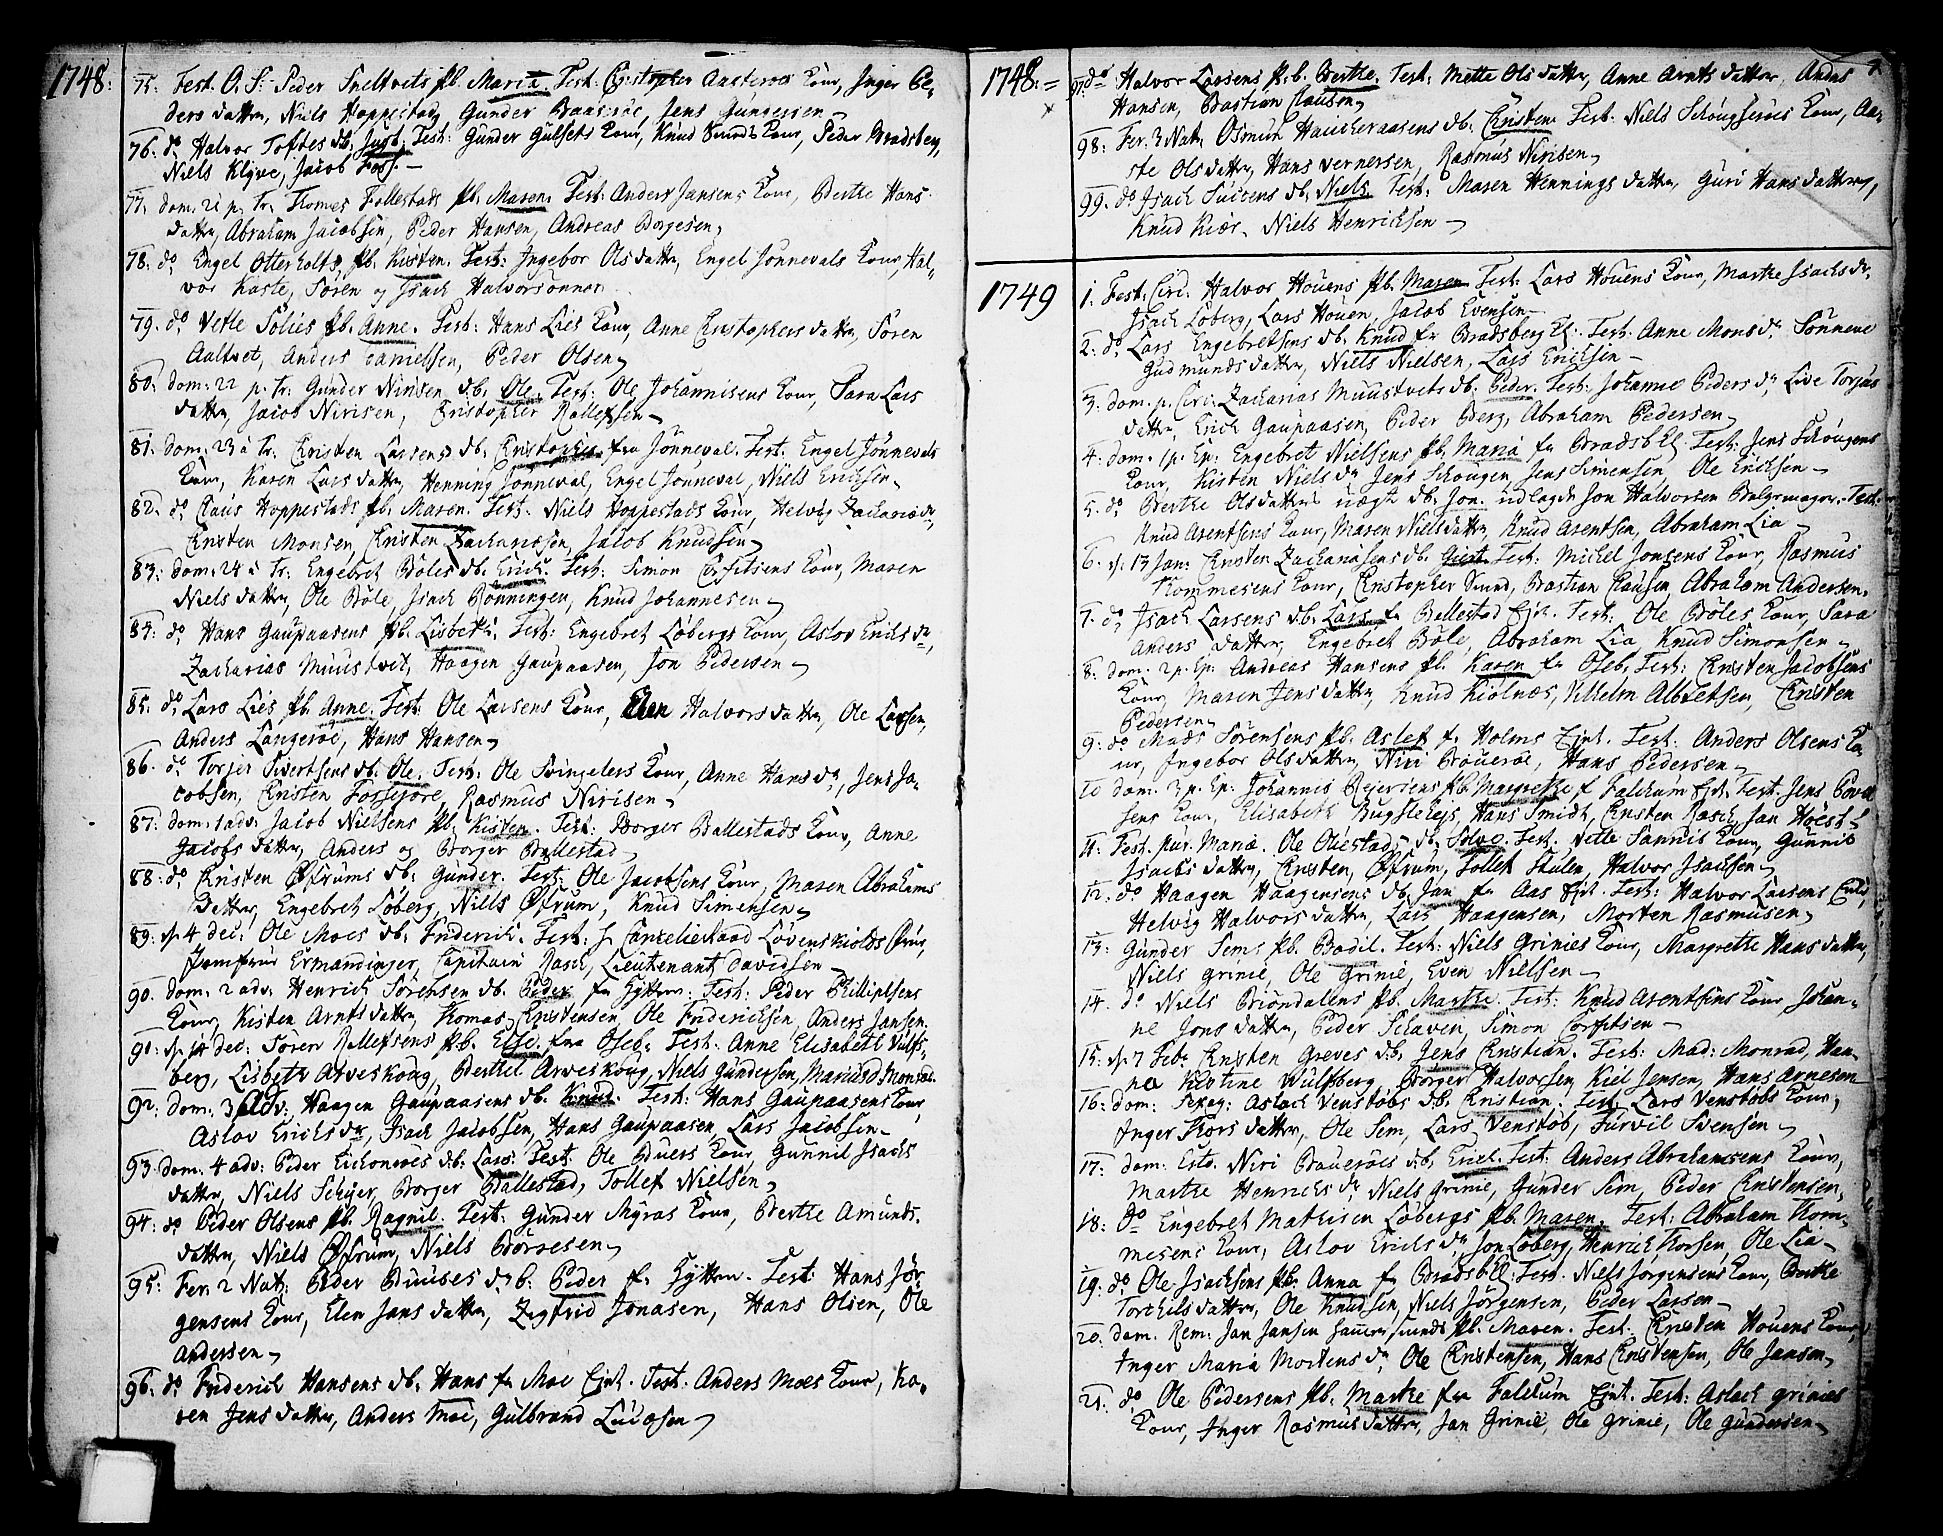 1748:
75. Fest. O. S: Peder Sneltvets pb. Maria. Test: Christopher Aasterøes Kone, Inger Pe-
ders datter, Niels Hoppestad, Gunder Braaserøe, Jens Gundersen
76. do Halvor Toftes db. Test: Gunder Gulsets Kone, Knud Kone, Peder Bradsberg,
Niels Klyve, Jacob Foss.
77. dom: 21 p. Tr. Thomes Follestads pb. Maren. Test: Anders Jansens Kone, Berthe Hans
datter, Abraham Jacobsen, Peder Hansen, Andreas Borgesen,
78. do Engel Otterholts pb. Kisten. Test: Ingebor Olsdatter, Engel Jønnevals Kone, Hal-
vor Kaste, Søren og Isach Halvorsønner
79. do Vetle Solies pb. Anne. Test: Hans Lies Kone, Anne Christophers datter, Søren
Aaltvet, Anders Danielsen, Peder Olsen
80. dom: 22 p. Tr. Gunder Nirisen db. Ole. Test: Ole Johannisens Kone, Sara Lars
datter, Jacob Nirisen, Christopher Rollefsen
81. dom: 23 à Tr. Christen Larsens db. fra Jønneval. Test. Engel Jønnevals
Kone, Karen Lars datter, Henning Jønneval, Engel Jønneval, Niels Erichsen
82. do Claus Hoppestads pb. Maren. Test. Niels Hoppestads Kone, Helvig Zachariæ dr,
Christen Monsen, Christen Zachariæsen, Jacob Knudsen
83: dom: 24 à Tr. Engebret Bøles db. Erich. Test: Simon Corfitsens Kone, Maren
Niels datter, Ole Bøle, Isach Bønningen, Knud Johannesen
84. do Hans Gaupaasens pb. Lisbeth. Test: Engebret Løbergs Kone, Aslov Erichs dr,
Zacharias Muustvet, Haagen Gaupaasen, Jon Pedersen
85. do Lars Lies pb. Anne. Test: Ole Larsens Kone, Elen Halvors datter, Ole Larsen,
Anders Langerøe, Hans Hansen
86. do Torger Sivertsens db. Ole. Test: Ole Svingelers Kone, Anne Hans dr, Jens Ja-
cobsen, Christen Fossejore, Rasmus Nirisen
87: dom: 1 adv: Jacob Nielsens pb. Kisten. Test: Borger Ballestads Kone, Anne
Jacobs datter, Anders og Borger Ballestad
88: do Christen Øfrums db. Gunder. Test: Ole Jacobsens Kone, Maren Abrahams
datter, Engebret Løberg, Niels Øfrum, Knud Simensen
89: d. 4 dec: Ole Moes db. Friderich. Test: Hr Cancelieraad Løvenskiolds Frue,
Jomfrue Ermandinger, Capitain Rasch, Lieutenant Davidsen
90. dom: 2 adv: Henrich Sørensen db. Peder fr Hytten. Test: Peder Phillipsens
Kone, Kisten Arnts datter, Thomas Christensen, Ole Friderichsen, Anders Jansen.
91. d. 14 dec: Søren Rollefsens pb. Else. fra Oseb. Test: Anne Elisabeth Vulfs-
berg, Lisbeth Arveskoug, Berthel Arveskoug, Niels Gundersen, Marius d. Monrad.
92: dom: 3 Adv: Haagen Gaupaasens db. Knud. Test: Hans Gaupaasens Kone,
Aslov Erichs dr, Isach Jacobsen, Hans Gaupaasen, Lars Jacobsen
93. dom: 4 adv: Peder Eichonroes db. Lars. Test: Ole Buers Kone, Gunnil Isachs
datter, Niels Schyer, Borger Ballestad, Tollef Nielsen
94. do Peder Olsens pb. Ragnil. Test: Gunder Myras Kone, Berthe Amunds.
datter, Niels Øfrum, Niels Børresen
95: Fer: 2 Nat: Peder Buuses db. Peder fr Hytten. Test: Hans Jør-
gensens Kone, Elen Jans datter, Zigfrid Jonasen, Hans Olsen, Ole
Andersen
96. do Friderich Hansens db. Hans fr Moe Ejet. Test. Anders Moes Kone, Ka-
ren Jens datter, Anders Moe, Gulbrand Lucæsen
1748.=
97. do Halvor Larsens pb. Berthe. Test: Mette Ols datter, Anne Arnts datter, Anders
Hansen, Bastian Clausen
98: Fer. 3 Nat. Osmun Hauckeraasens db. Christen. Test. Niels Schougserøes Kone, Aa-
ste Ols datter, Hans Vernersen, Rasmus Nirisen
99. do Isach Suicens db. Niels. Test: Maren Hennings datter, Guri Hans datter,
Knud Kiær. Niels Henrichsen
1749
1. Fest. Circ: Halvor Houens pb. Maren. Test. Lars Houens Kone, Marthe Isachs dr,
Isach Løberg, Lars Houen, Jacob Evensen
2. do Lars Engebretsens db. Knud fr Bradsberg Ej: Test: Anne Mons dr Sønneve
Gudmunds datter, Niels Nielsen, Lars Erichsen
3. dom. p. Circ: Zacharias Muustvets db. Peder. Test: Johanne Peders dr Live Torjus
datter, Erich Gaupaasen, Peder Berg, Abraham Pedersen
4. dom. 1 p. Ep: Engebret Nielsens pb. Maria fr Bradsb. Ej. Test: Jens Schougens
Kone, Kisten Niels dr, Jens Schougen, Jens Simensen, Ole Erichsen
5. do Berthe Olsdatters uægte db. Jon. udlagde Jon Halvorsen Bælgemager. Test.
Knud Arentsens Kone, Maren Nielsdatter, Knud Arentsen, Abraham Lia
6. d. 13 Jan: Christen Zachariasens db. Test: Michel Jonsens Kone, Rasmus
Thommesens Kone, Christopher Sund, Bastian Clausen, Abraham Andersen.
7. do Isach Larsens db. Lars fr Ballestad Ejet. Test. Ole Bøles Kone, Sara
Anders datter, Engebret Bøle, Abraham Lia, Knud Simonsen
8. dom. 2 p. Ep. Andreas Hansens pb. Karen fr Oseb. Test: Christen Jacobsens
Kone, Maren Jens datter, Knud Kiølnes, Vilhelm Albretsen, Christen
Pedersen
9. do Mads Sørensens pb. Aslef fr Holms Ejet. Test. Anders Olsens Ko-
ne, Ingebor Ols datter, Niri Brøuerøe, Hans Pedersen
10 dom. 3 p. Ep: Johannis Rejersens pb. Margrethe fr Falchum Ejet. Test. Jens Povel
sens Kone, Elisabeth Bugsleiejs, Hans Smidt, Christen Rasch, Jan Høest
11. Fest. pur. Mariæ. Ole Oliestads db. Test. Vetle Sannis Kone, Gunnil
Isachs datter, Christen Øfrum, Tollef Skulen, Halvor Isachsen
12. do Haagen Haagensens db. Jan fr Aas Ejet. Test: Halvor Larsens
Helvig Halvors datter, Lars Haagensen, Morten Rasmusen
13: Gunder Sems pb. Bodil. Test: Niels Grinies Kone, Margrethe Hans datter,
Niels Grinie, Ole Grinie, Even Nielsen
14. do Niels Briøndalens pb. Marthe. Test: Knud Arentsens Kone, Johan-
ne Jons datter, Peder Schaven, Simon Corfitsen
15: d. 7 Febr Christen Greves db. Jens Christian. Test: Mad: Monrad, Han-
na Kistine Wulfsberg, Borger Halvorsen, Kiel Jensen, Hans Arnesen
16: dom: Sexag: Aslach Venstøbs db. Christian. Test. Lars Venstøbs Kone,
Inger Thors datter, Ole Sem, Lars Venstøb, Turvil Svensen
17: dom: Esto. Niri Brauerøes db. Erich. Test: Anders Abrahamsens Kone,
Marthe Henrichs dr Niels Grinie, Gunder Sem, Peder Christensen,
18: do Engebret Mathisen Løbergs pb. Maren. Test: Abraham Thom-
mesens Kone, Aslov Erichs dr, Jon Løberg, Henrich Thorsen, Ole Lia
19: do Ole Isachsens pb. Anna fr Bradsb. Ej: Test. Niels Jørgensens Kone, Berthe
Torchils datter, Ole Knudsen, Niels Jørgensen, Peder Larsen
20: dom. Rem: Jan Jansen pb. Maren. Test. Christen Houens Kone,
Inger Maria Mortens dr Ole Christensen, Hans Christensen, Ole Jansen
21. do Ole Pedersens pb. Marthe fra Falchum Ejet. Test: Aslach Grinies
Kone, Inger Rasmus datter, Jan Grinie, Ole Grinie, Ole Gundersen